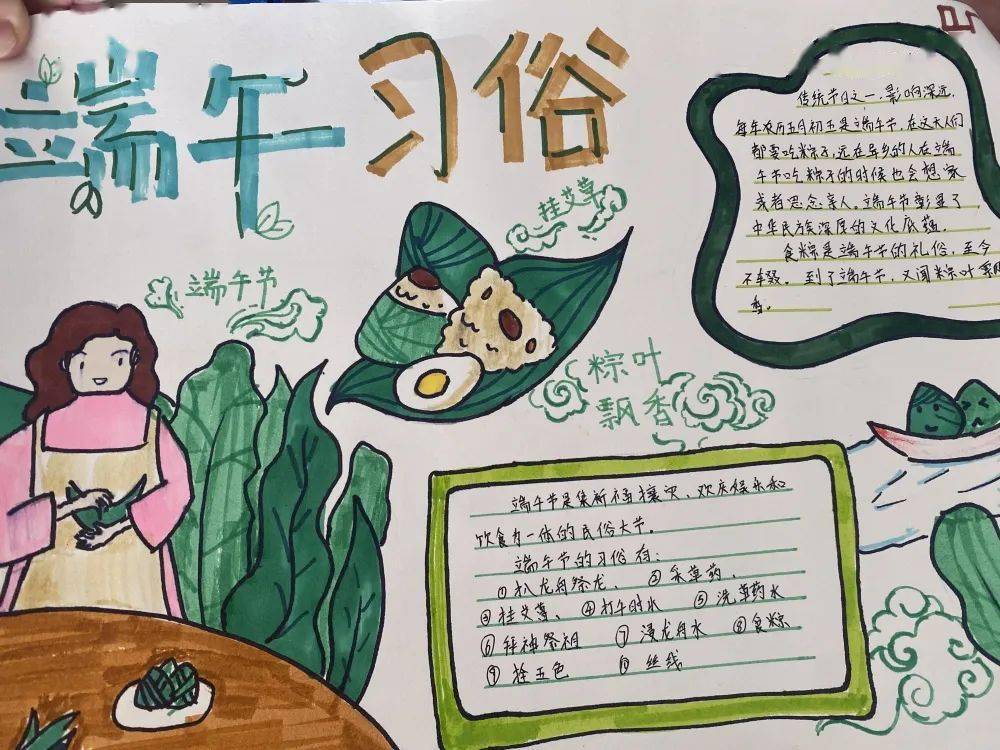 端午习俗
传统节日之一,影响深远。
每年农历五月初五是端午节,在这天人们
都要吃粽子,远在异乡的人在端
午节吃粽子的时候也会想家
或者思念亲人。端午节彰显了
中华民族深厚的文化底蕴。
食粽是端午节的礼俗,至今
不辍。到了端午节,又闻粽叶飘
香。
挂艾草
端午节
粽叶
飘香
端午节是集祈福攘灾、欢庆娱乐和
饮食为一体的民俗大节。
端午节的习俗有:
①扒龙舟祭龙、 ②采草药、
③挂艾草、④打午时水 ⑤洗草药水
⑥拜神祭祖 ⑦浸龙舟水 ⑧食粽
⑨拴五色 ⑩丝线